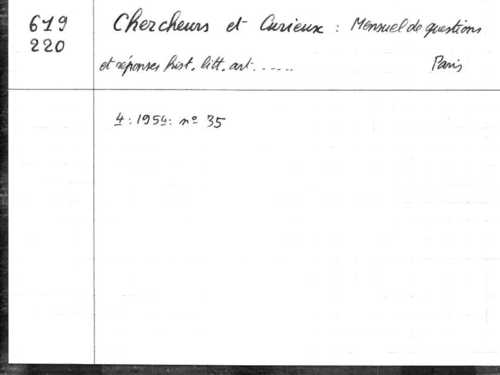 619 Chercheurs et Curieux : Mensuel de questions
220 et réponses hist. litt. art...... Paris
4 : 1954 : nº 35